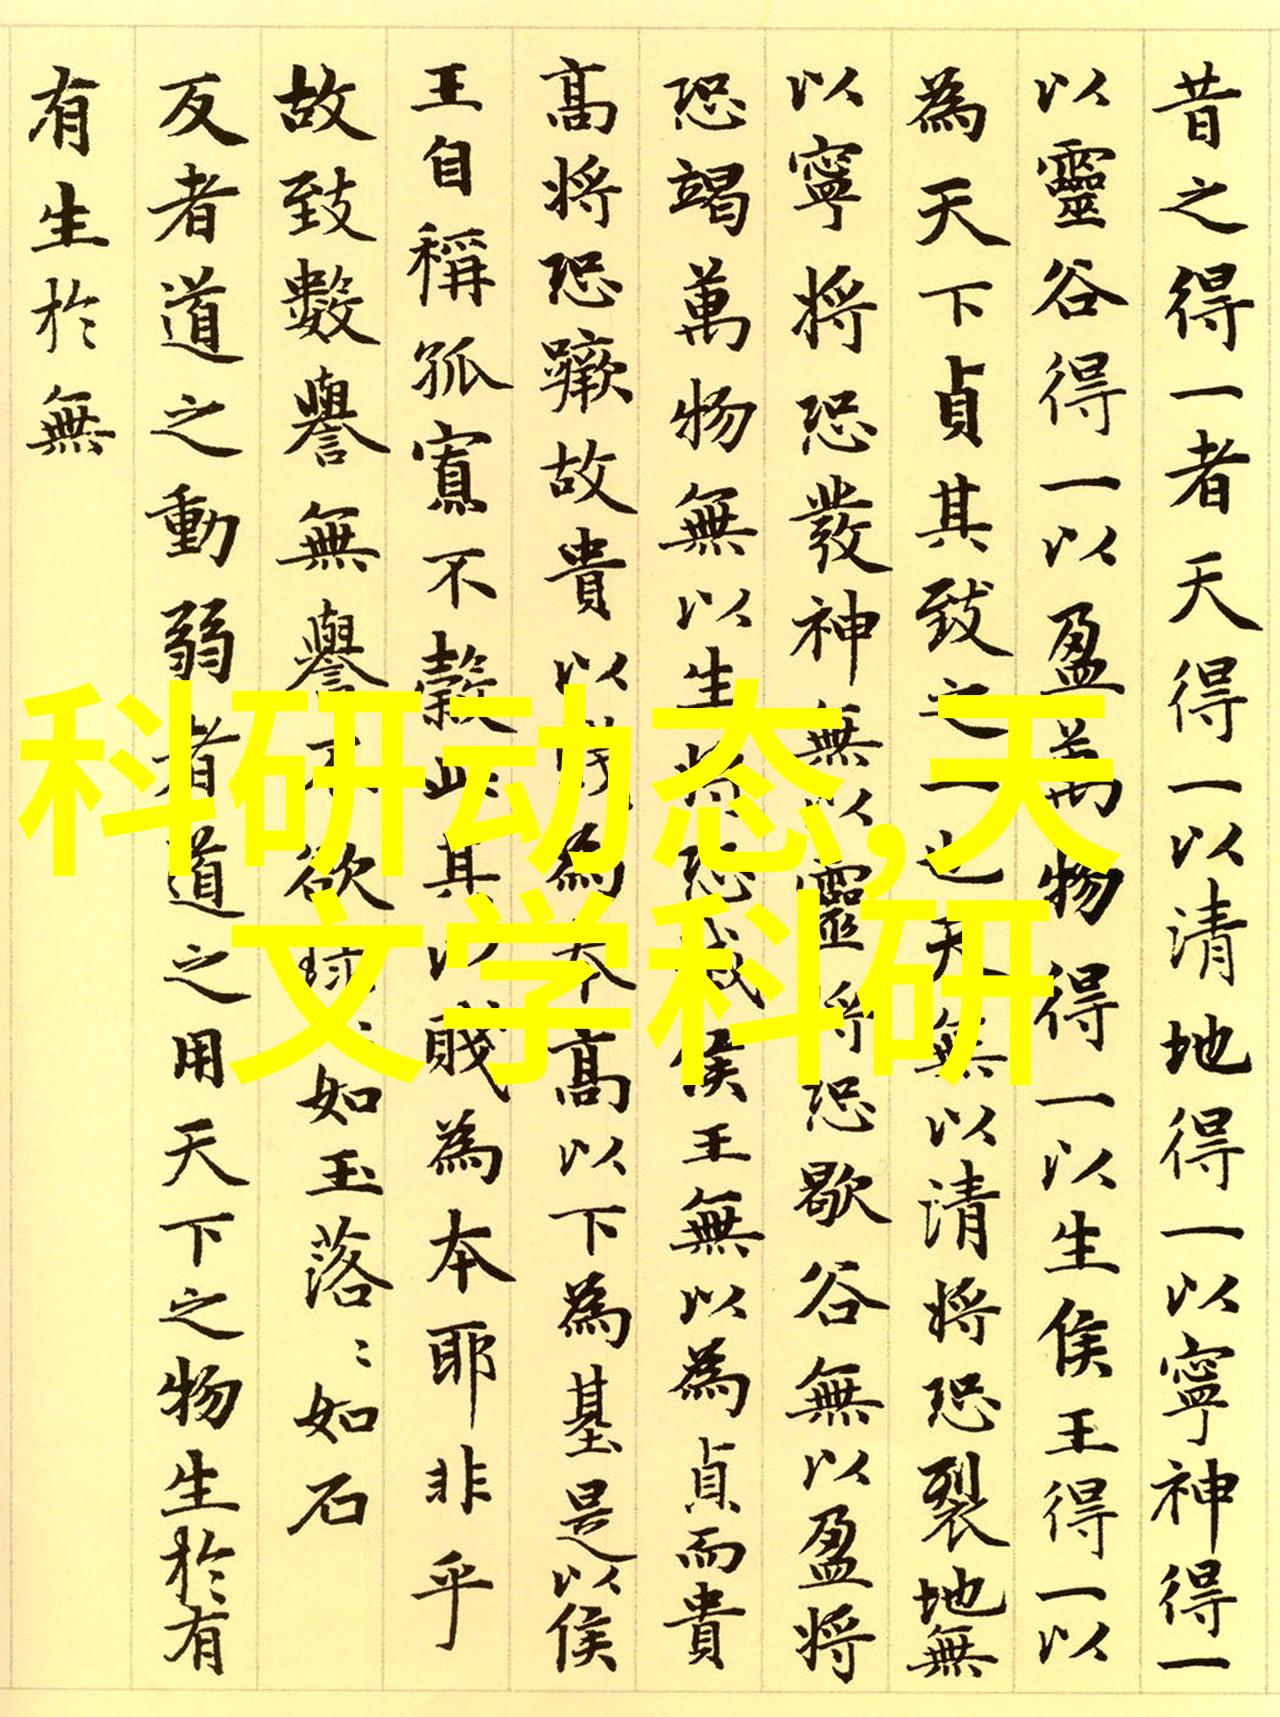 昔之得一者天得一以清地得一以寧神得一
以靈谷得一以盈萬物得一以生侯王得一以
為天下貞其致之一也天無以清將恐裂地無
以寧將恐發神無以靈將恐歇谷無以盈將
恐竭萬物無以生將恐滅侯王無以為貞而貴
高將恐蹶故貴以賤為本高以下為基是以侯
王自稱孤寡不穀此其以賤為本耶非乎
故致數譽無譽不欲琭:如玉落:如石
反者道之動弱者道之用天下之物生於有
有生於無
科研动态,天
文学科研